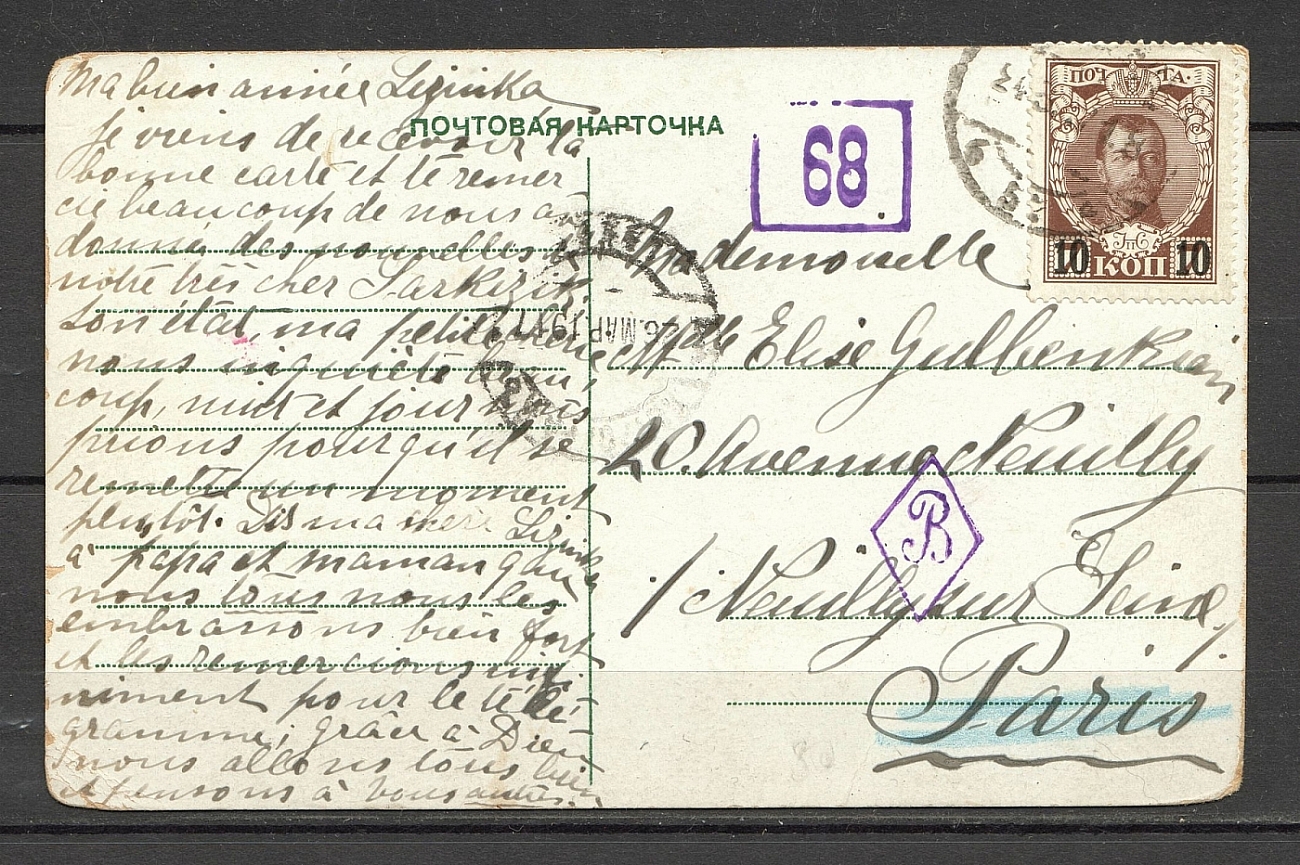 Ma bien aimée Lisinka
Je viens de recevoir ta
bonne carte et te remer
cie beaucoup de nous a
donné des nouvelles de
notre très cher Sarkis
Son état, ma petite
nous inquiète beau
coup, nuit et jour nous
prions pourqu'il se
remette un moment
plutôt. Dis ma chère Lisinka
à papa et maman que
nous tous nous les
embrassons bien fort
et les remercions infi
niment pour le télé
gramme; grâce à Dieu
nous allons tous bien
et pensons à vous autres.
ПОЧТОВАЯ КАРТОЧКА
68
ПОЧТА
10 КОП 10
26 МАР 1917
Mademoiselle
Mlle Elise Gulbenkian
20 Avenue Neuilly
B
/ Neuilly sur Seine /
Paris